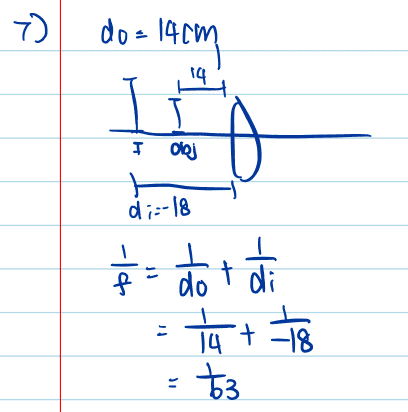 7) do = 14cm
14
I obj
di=-18
1/f = 1/do + 1/di
= 1/14 + 1/-18
= 1/63